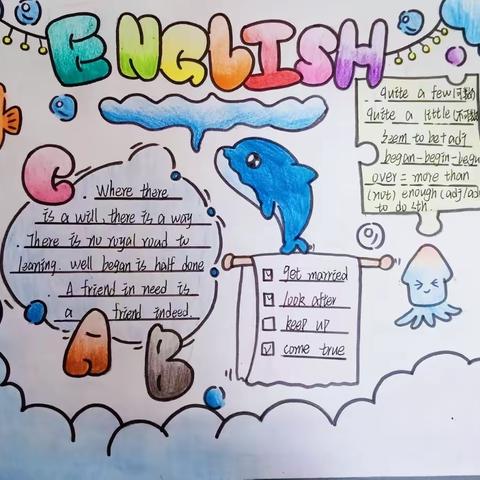 ENGLISH
quite a few(可数)
quite a little(不可数)
seem to be+adj
began-begin-begu
over = more than
(not) enough (adj/adv
to do sth.
C
. Where there
is a will, there is a way
. There is no royal road to
learning. well began is half done
. A friend in need is
a friend indeed.
get married
look after
keep up
come true
A
B